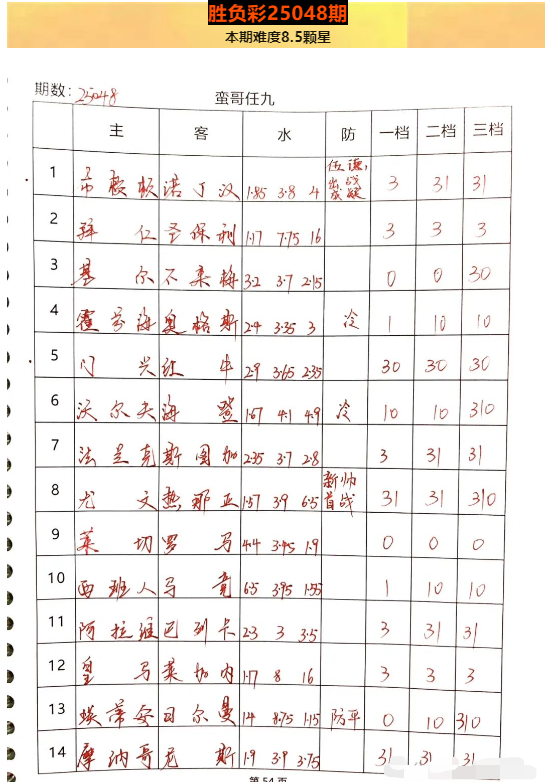 胜负彩25048期
本期难度8.5颗星
期数: 25048 蛮哥任九
主 客 水 防 一档 二档 三档
1 布莱顿 诺丁汉 1.85 3.8 4 伍德, 出战 3 31 31
2 拜仁 圣保利 1.17 7.75 16 3 3 3
3 基尔 不来梅 3.2 3.7 2.15 0 0 30
4 霍芬海 奥格斯 2.4 3.35 3 冷 1 10 10
5 门兴 红牛 2.9 3.65 2.35 30 30 30
6 沃尔夫 海登 1.67 4.1 4.9 冷 10 10 310
7 法兰克 斯图加 2.35 3.7 2.8 3 31 31
8 尤文 热那亚 1.57 3.9 6.5 新帅首战 31 31 310
9 莱切 罗马 4.4 3.45 1.9 0 0 0
10 西班人 马竞 6.5 3.95 1.55 1 10 10
11 阿拉维 巴列卡 2.3 3 3.5 3 31 31
12 皇马 莱加内 1.17 8 16 3 3 3
13 埃蒂安 日尔曼 14 8.75 1.15 防平 0 10 310
14 摩纳哥 尼斯 1.9 3.9 3.75 31 31 31
第 54 页